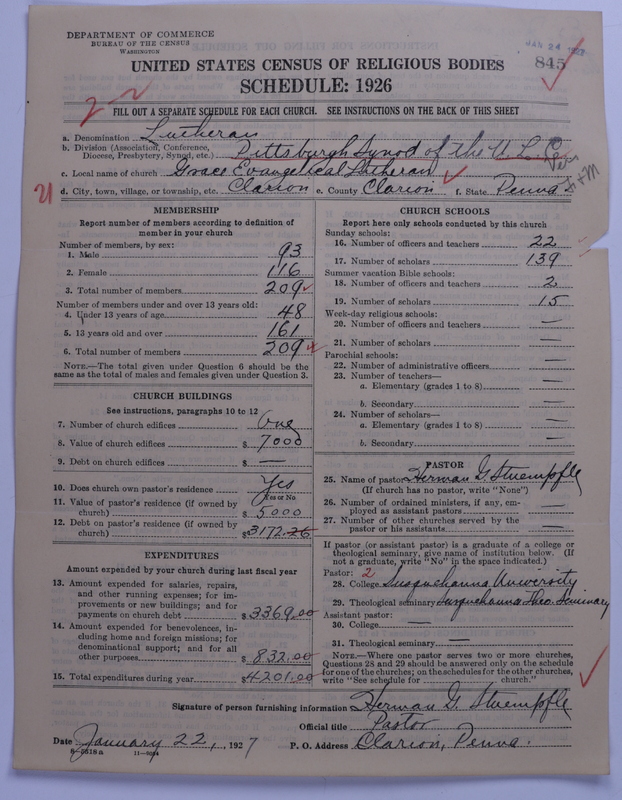 DEPARTMENT OF COMMERCE
BUREAU OF THE CENSUS
WASHINGTON
JAN 24 1927
845
UNITED STATES CENSUS OF RELIGIOUS BODIES
SCHEDULE: 1926
2
FILL OUT A SEPARATE SCHEDULE FOR EACH CHURCH. SEE INSTRUCTIONS ON THE BACK OF THIS SHEET
a. Denomination Lutheran
b. Division (Association, Conference, Diocese, Presbytery, Synod, etc.) Pittsburgh Synod of the U. L. C.
c. Local name of church Grace Evangelical Lutheran
d. City, town, village, or township, etc. Clarion e. County Clarion f. State Penna
21
MEMBERSHIP
Report number of members according to definition of
member in your church
Number of members, by sex:
1. Male 93
2. Female 116
3. Total number of members 209
Number of members under and over 13 years old:
4. Under 13 years of age 48
5. 13 years old and over 161
6. Total number of members 209
NOTE.—The total given under Question 6 should be the
same as the total of males and females given under Question 3.
CHURCH BUILDINGS
See instructions, paragraphs 10 to 12
7. Number of church edifices One
8. Value of church edifices $ 7000
9. Debt on church edifices $ —
10. Does church own pastor's residence Yes
Yes or No
11. Value of pastor's residence (if owned by
church) $ 5000
12. Debt on pastor's residence (if owned by
church) $ 3172.26
EXPENDITURES
Amount expended by your church during last fiscal year
13. Amount expended for salaries, repairs,
and other running expenses; for im-
provements or new buildings; and for
payments on church debt $ 3369.00
14. Amount expended for benevolences, in-
cluding home and foreign missions; for
denominational support; and for all
other purposes $ 832.00
15. Total expenditures during year $ 4201.00
CHURCH SCHOOLS
Report here only schools conducted by this church
Sunday schools:
16. Number of officers and teachers 22
17. Number of scholars 139
Summer vacation Bible schools:
18. Number of officers and teachers 2
19. Number of scholars 15
Week-day religious schools:
20. Number of officers and teachers —
21. Number of scholars —
Parochial schools:
22. Number of administrative officers —
23. Number of teachers—
a. Elementary (grades 1 to 8) —
b. Secondary —
24. Number of scholars—
a. Elementary (grades 1 to 8) —
b. Secondary —
PASTOR
25. Name of pastor Herman G. Stuempfle
(If church has no pastor, write "None")
26. Number of ordained ministers, if any, em-
ployed as assistant pastors —
27. Number of other churches served by the
pastor or his assistants —
If pastor (or assistant pastor) is a graduate of a college or
theological seminary, give name of institution below. (If
not a graduate, write "No" in the space indicated.)
Pastor: 2
28. College Susquehanna University
29. Theological seminary Susquehanna Theo. Seminary
Assistant pastor:
30. College —
31. Theological seminary —
NOTE.—Where one pastor serves two or more churches,
Questions 28 and 29 should be answered only on the schedule
for one of the churches; on the schedules for the other churches,
write "See schedule for church."
Signature of person furnishing information Herman G. Stuempfle
Official title Pastor
Date January 22, 1927 P. O. Address Clarion, Penna.
8—5518a 11—9024